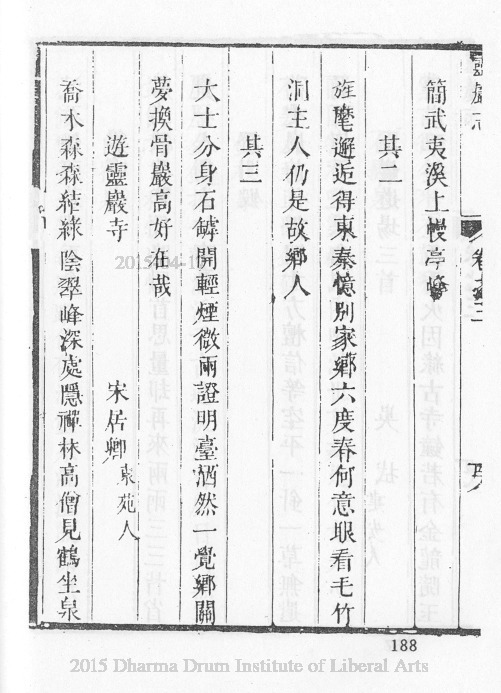 靈巖志
卷之三
簡武夷溪上幔亭峰
其二
旌麾邂逅得東秦憶別家鄉六度春何意眼看毛竹
洞主人仍是故鄉人
其三
大士分身石罅開輕煙微雨證明臺洒然一覺鄉關
夢換骨巖高好在哉
遊靈巖寺 宋居卿 東苑人
喬木森森結綠陰翠峰深處隱禪林高僧見鶴坐泉
188
2015 Dharma Drum Institute of Liberal Arts